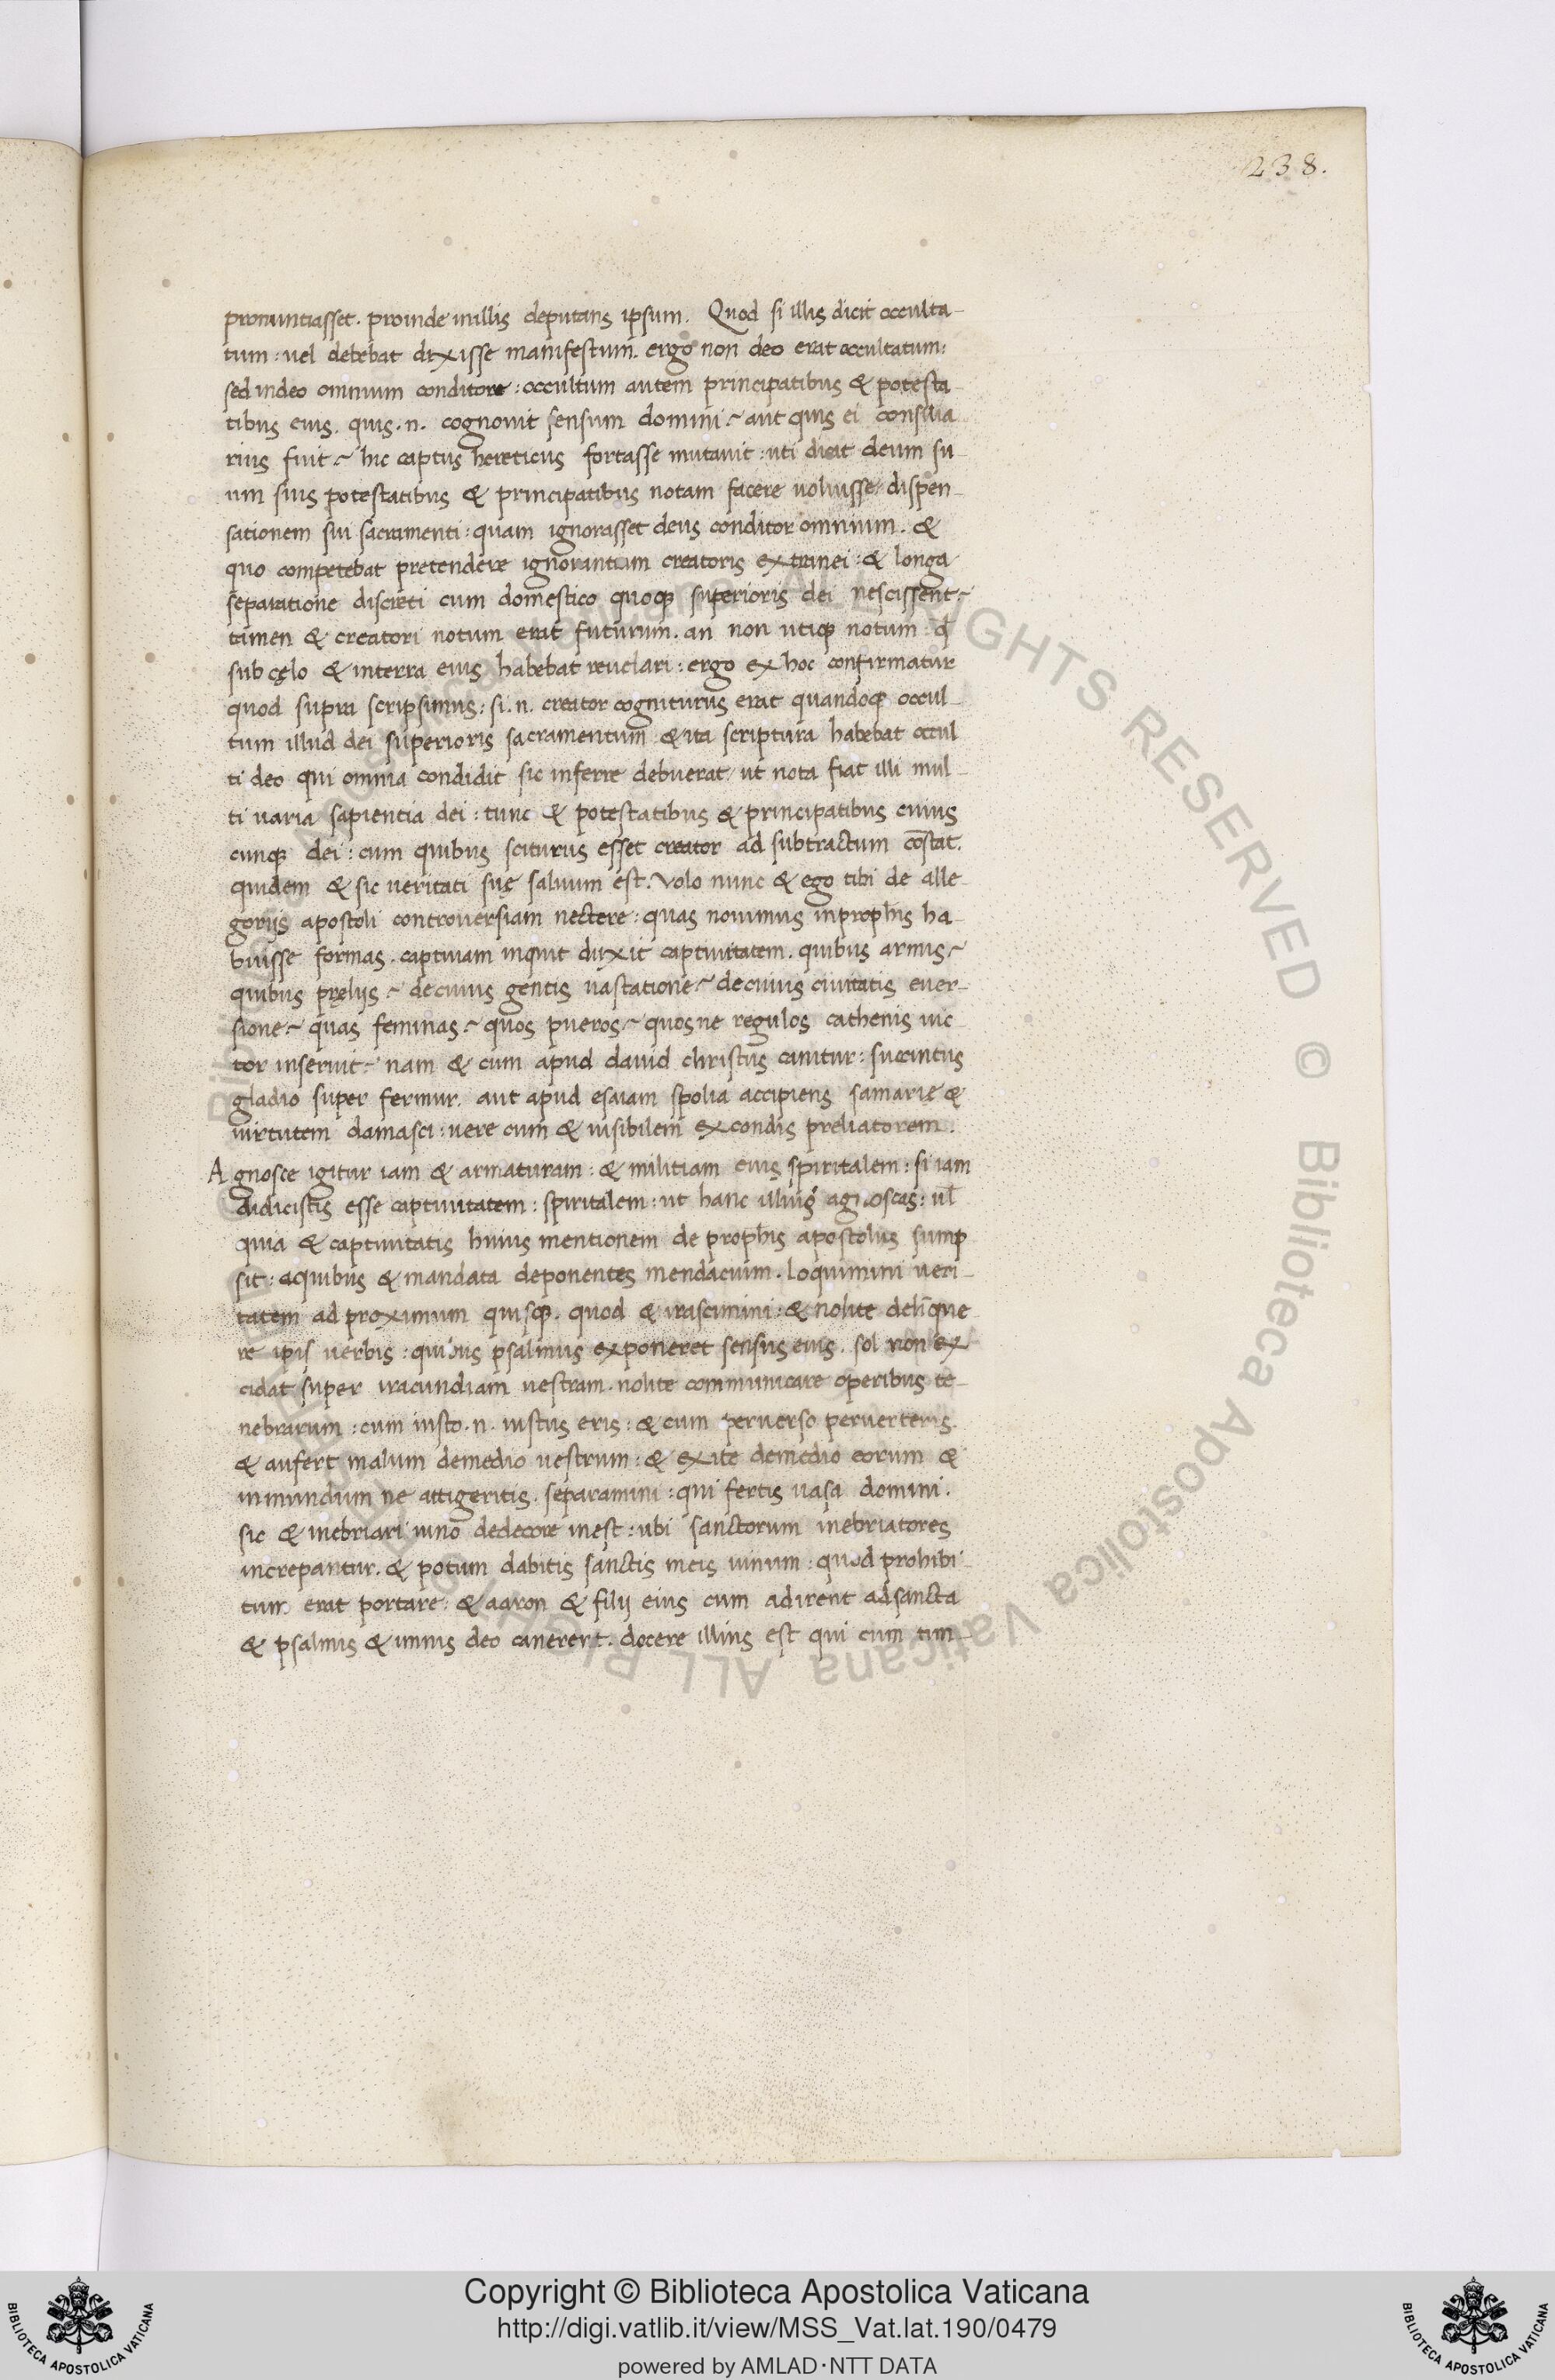 238.
pronuntiasset. proinde inillis deputans ipsum. Quod si illis dicit occulta-
tum: uel debebat dixisse manifestum. ergo non deo erat occultatum:
sed indeo omnium conditore: occultum autem principatibus & potesta-
tibus eius. quis .n. cognouit sensum domini? aut quis ei consilia
rius fuit? hic captus hereticus fortasse mutauit: uti dicat deum su-
um suis potestatibus & principatibus notam facere uoluisse dispen-
sationem sui sacramenti: quam ignorasset deus conditor omnium. &
quo competebat pretendere ignorantiam creatoris extranei: & longa
separatione discreti cum domestico quoqꝫ superioris dei nescissent?
tamen & creatori notum erat futurum. an non utiqꝫ notum: qđ
sub cęlo & interra eius habebat reuelari: ergo ex hoc confirmatur
quod supra scripsimus: si .n. creator cogniturus erat quandoqꝫ occul-
tum illud dei superioris sacramentum & ita scriptura habebat occul
ti deo qui omnia condidit sic inferre debuerat ut nota fiat illi mul-
ti uaria sapientia dei: tunc & potestatibus & principatibus cuius
cunqꝫ dei: cum quibus sciturus esset creator ad subtractum cōstat.
quidem & sic ueritati suę saluum est. Volo nunc & ego tibi de alle-
gorijs apostoli controuersiam nectere: quas nouimus inprophis ha-
buisse formas. captiuam inquit duxit captiuitatem. quibus armis?
quibus pręlijs? decuius gentis uastatione? decuius ciuitatis euer-
sione? quas feminas? quos pueros? quosne regulos cathenis uic
tor inseruit? nam & cum apud dauid christus canitur: succintus
gladio super femur. aut apud esaiam spolia accipiens samarię &
uirtutem damasci: uere cum & uisibilem excondis preliatorem.
Agnosce igitur iam & armaturam: & militiam eius spiritalem: si iam
didicistis esse captiuitatem: spiritalem: ut hanc illius agnoscas: ul̄
quia & captiuitatis huius mentionem de prophis apostolus sump
sit: aquibus & mandata deponentes mendacium. loquimini ueri-
tatem ad proximum quisqꝫ. quod & irascimini: & nolite delīque
re ipis uerbis: quibus psalmus exponeret sensus eius. sol non ex
cidat super iracundiam uestram. nolite communicare operibus te-
nebrarum: cum iusto .n. iustus eris: & cum peruerso peruerteris.
& aufert malum demedio uestrum: & exite demedio eorum &
inmundum ne attigeritis. separamini: qui fertis uasa domini.
sic & inebriari uino dedecore inest: ubi sanctorum inebriatores
increpantur. & potum dabitis sanctis meis uinum: quod prohibi-
tum erat portare: & aaron & filij eius cum adirent adsancta
& psalmis & imnis deo canerent. docere illius est qui cum tim-
Copyright © Biblioteca Apostolica Vaticana
http://digi.vatlib.it/view/MSS_Vat.lat.190/0479
powered by AMLAD·NTT DATA